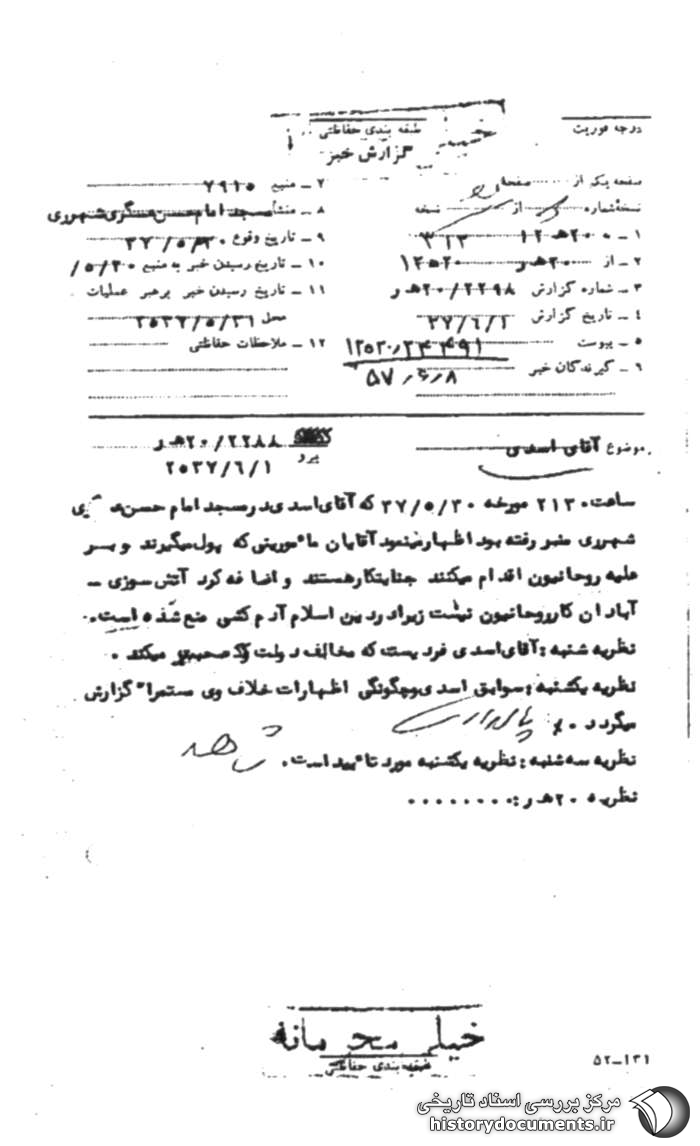 درجه فوریت
طبقه بندی حفاظتی
خیلی
گزارش خبر
صفحه یک از صفحه
نسخه شماره از نسخه
۱ - ۲۰۰ هـ ۱۲ ۳۱۲
۲ - از ۲۰ هـ ر ۱۲۵۲۰
۳ - شماره گزارش ۲۰/۲۲۹۸ هـ ر
۴ - تاریخ گزارش ۳۷/۶/۱
۵ - پیوست
۶ - گیرندگان خبر
۱۲۵۲۰٫۲۴۴۹۱
۵۷٫۶٫۸
۷ - منبع ۷۹۱۵
۸ - منشأ مسجد امام حسن عسگری شهرری
۹ - تاریخ وقوع ۳۷/۵/۳۰
۱۰ - تاریخ رسیدن خبر به منبع ۵/۳۰/
۱۱ - تاریخ رسیدن خبر برهبر عملیات
محل ۲۵۳۷/۵/۳۱
۱۲ - ملاحظات حفاظتی
موضوع آقای اسدی
پیرو ۲۰/۲۲۸۸ هـ ر
۲۵۳۷/۶/۱
ساعت ۲۱۳۰ مورخه ۳۷/۵/۳۰ که آقای اسدی در مسجد امام حسن عسگری
شهرری منبر رفته بود اظهار مینمود آقایان مأمورینی که پول میگیرند و بر
علیه روحانیون اقدام میکنند جنایتکار هستند و اضافه کرد آتش سوزی -
آبادان کار روحانیون نیست زیرا در دین اسلام آدم کشی منع شده است.
نظریه شنبه : آقای اسدی فردیست که مخالف دولت صحبت میکند .
نظریه یکشنبه : سوابق اسدی و چگونگی اظهارات خلاف وی مستمراً گزارش
میگردد .
نظریه سه شنبه : نظریه یکشنبه مورد تأیید است.
نظریه ۲۰ هـ ر : .........
خیلی محرمانه
طبقه بندی حفاظتی
۵۲-۱۳۱
مرکز بررسی اسناد تاریخی
historydocuments.ir